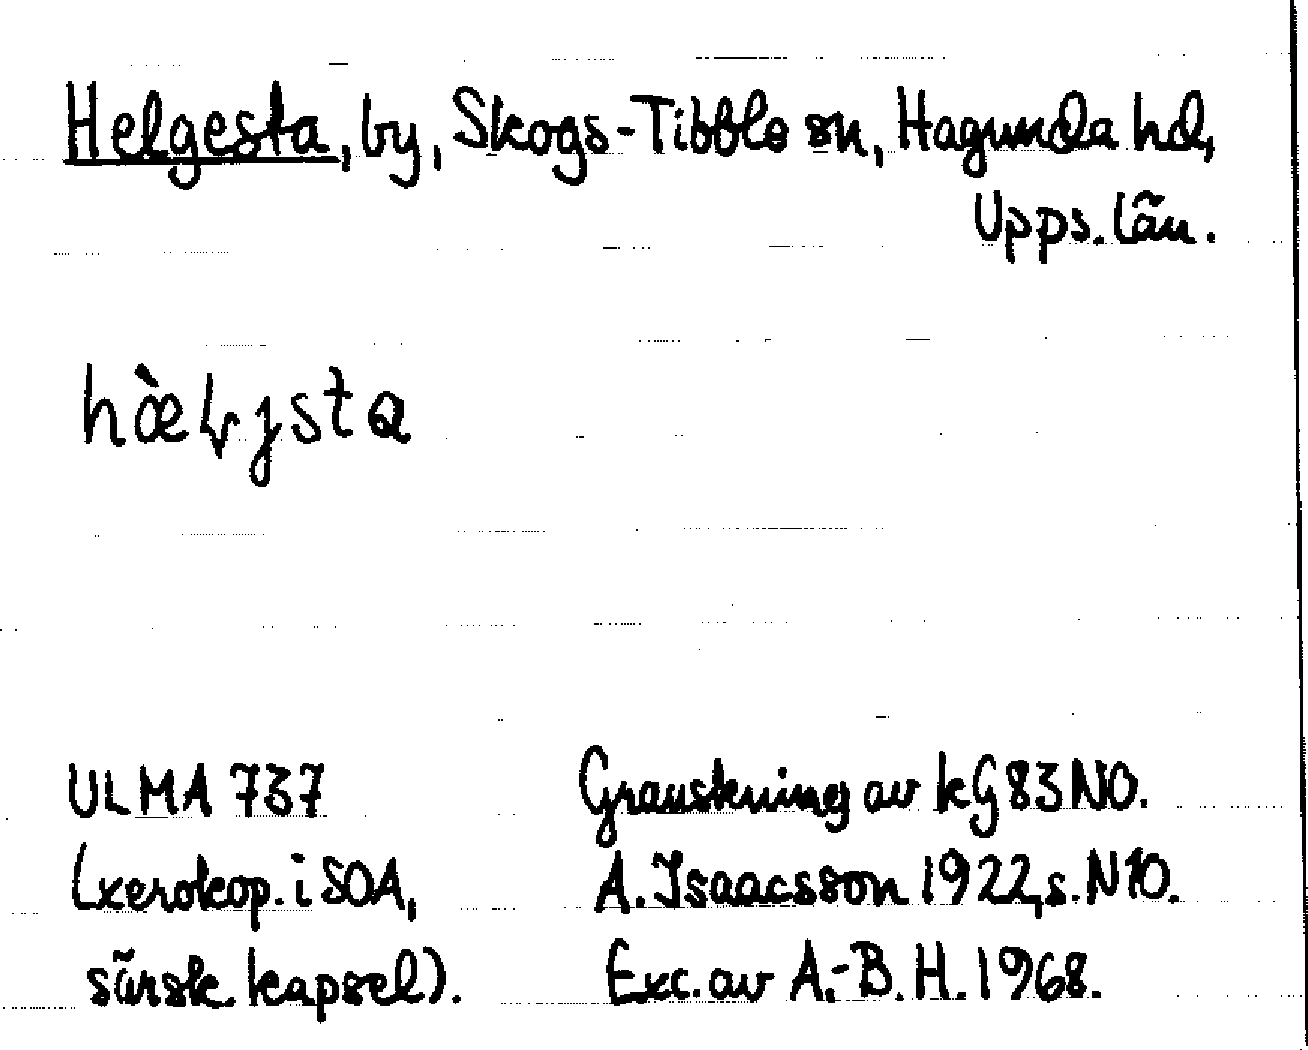 Helgesta, by, Skogs-Tibble sn, Hagunda hd,
Upps. län.
hæ̀lɉsta
ULMA 737
(xerokop. i SOA,
särsk. kapsel).
Granskning av kG 83 NO.
A. Isaacsson 1922, s. N10.
Exc. av A.-B. H. 1968.